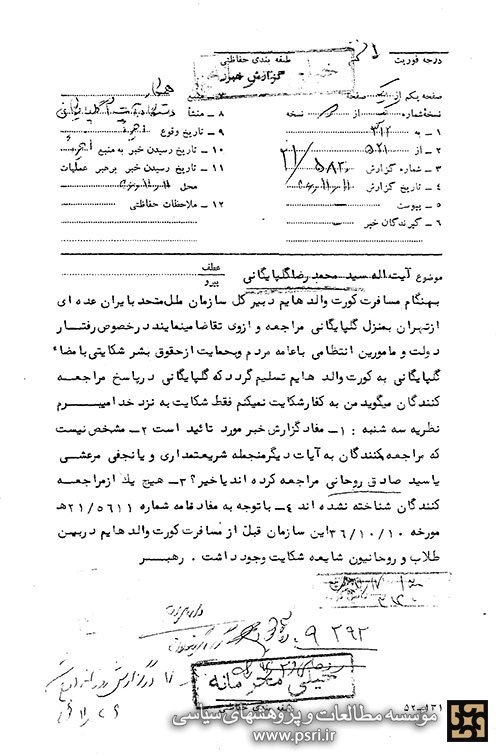 درجه فوریت
طبقه بندی حفاظتی
گزارش خبر
صفحه یکم از یک صفحه
نسخه شماره از نسخه
۱ - به ۳۱۲
۲ - از ۵۲۱
۳ - شماره گزارش
۴ - تاریخ گزارش
۵ - پیوست
۶ - گیرندگان خبر
۷ - منبع
۸ - منشأ
۹ - تاریخ وقوع
۱۰ - تاریخ رسیدن خبر به منبع
۱۱ - تاریخ رسیدن خبر برهبر عملیات محل
۱۲ - ملاحظات حفاظتی
موضوع آیت اله سید محمد رضا گلپایگانی
عطف
پیرو
بهنگام مسافرت کورت والدهایم دبیر کل سازمان ملل متحد بایران عده ای
از تهران بمنزل گلپایگانی مراجعه و ازوی تقاضا مینمایند در خصوص رفتار
دولت و مامورین انتظامی با عامه مردم و بحمایت از حقوق بشر شکایتی با مضاء
گلپایگانی به کورت والدهایم تسلیم گردد که گلپایگانی در پاسخ مراجعه
کنندگان میگوید من به کفار شکایت نمیکنم فقط شکایت به نزد خدا میبرم
نظریه سه شنبه : ۱- مفاد گزارش خبر مورد تائید است ۲- مشخص نیست
که مراجعه کنندگان به آیات دیگر منجمله شریعتمداری و یا نجفی مرعشی
یا سید صادق روحانی مراجعه کرده اند یا خیر؟ ۳- هیچ یک از مراجعه
کنندگان شناخته نشده اند ۴- با توجه به مفاد نامه شماره ۲۱/۵۶۱۱ه
مورخه ۳۶/۱۰/۱۰ این سازمان قبل از مسافرت کورت والدهایم در بین
طلاب و روحانیون شایعه شکایت وجود داشت . رهبر
خیلی محرمانه
طبقه بندی حفاظتی
۵۲-۱۳۱
موسسه مطالعات و پژوهشهای سیاسی
www.psri.ir